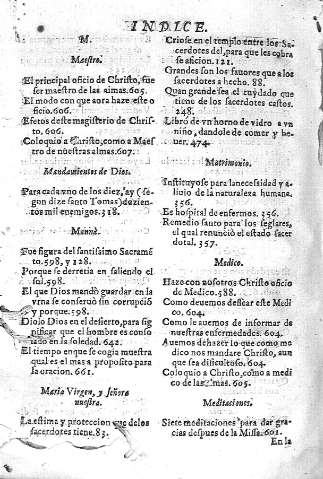 INDICE.
M.
Maestro.
El principal oficio de Christo, fue
ser maestro de las almas. 605.
El modo con que aora haze este o
ficio. 606.
Efetos deste magisterio de Chris-
to, 606.
Coloquio a Christo, como a Maes
tro de nuestras almas. 607.
Mandamientos de Dios.
Para cada vno de los diez, ay (se
gun dize santo Tomas) dozien-
tos mil enemigos. 318.
Mannà.
Fue figura del santissimo Sacramē
to. 598, y 128.
Porque se derretia en saliendo el
sol. 598.
El que Dios mandò guardar en la
vrna se conseruò sin corrupciō
y porque. 598.
Diolo Dios en el desierto, para sig
nificar que el hombre es conso
lado en la soledad. 642.
El tiempo en que se cogia muestra
qual es el mas a proposito para
la oracion. 661.
Maria Virgen, y señora
nuestra.
La estima y proteccion que de los
sacerdotes tiene. 83.
Criose en el templo entre los Sa-
cerdotes del, para que les cobra
se aficion. 121.
Grandes son los fauores que a los
sacerdotes a hecho. 88.
Quan grande sea el cuydado que
tiene de los sacerdotes castos.
248.
Librò de vn horno de vidro a vn
niño, dandole de comer y be-
uer. 474.
Matrimonio.
Instituyose para la necessidad y a
liuio de la naturaleza humana.
356.
Es hospital de enfermos. 356.
Remedio santo para los seglares,
el qual renunciò el estado sacer
dotal. 357.
Medico.
Haze con nosotros Christo oficio
de Medico. 588.
Como deuemos dessear este Medi
co. 604.
Como le auemos de informar de
nuestras enfermedades. 604.
Auemos de hazer lo que como me
dico nos mandare Christo, aun
que sea dificultoso. 604.
Coloquio a Christo, como a medi
co de las almas. 605.
Meditaciones.
Siete meditaciones para dar gra-
cias despues de la Missa. 601.
En la